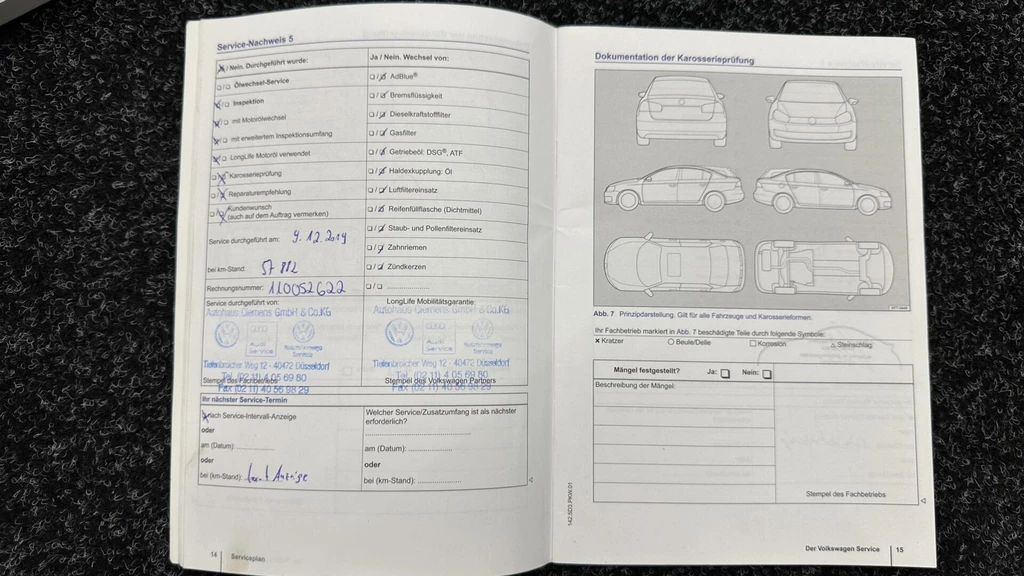 Service-Nachweis 5
Ja / Nein. Durchgeführt wurde:
Ölwechsel-Service
Inspektion
mit Motorölwechsel
mit erweitertem Inspektionsumfang
LongLife Motoröl verwendet
Karosserieprüfung
Reparaturempfehlung
Kundenwunsch
(auch auf dem Auftrag vermerken)
Service durchgeführt am: 9.12.2019
bei km-Stand: 57 882
Rechnungsnummer: 110052622
Service durchgeführt von:
Autohaus Clemens GmbH & Co.KG
Audi
Service
Tiefenbroicher Weg 12 - 40472 Düsseldorf
Tel. (02 11) 4 05 69 80
Stempel des Fachbetriebs
Fax (02 11) 40 56 98 29
Ja / Nein. Wechsel von:
AdBlue®
Bremsflüssigkeit
Dieselkraftstofffilter
Gasfilter
Getriebeöl: DSG®, ATF
Haldexkupplung: Öl
Luftfiltereinsatz
Reifenfüllflasche (Dichtmittel)
Staub- und Pollenfiltereinsatz
Zahnriemen
Zündkerzen
LongLife Mobilitätsgarantie:
Autohaus Clemens GmbH & Co.KG
Audi
Service
Tiefenbroicher Weg 12 - 40472 Düsseldorf
Tel. (02 11) 4 05 69 80
Stempel des Volkswagen Partners
Fax (02 11) 40 56 98 29
Ihr nächster Service-Termin
Nach Service-Intervall-Anzeige
oder
am (Datum):
oder
bei (km-Stand): laut Anzeige
Welcher Service/Zusatzumfang ist als nächster
erforderlich?
am (Datum):
oder
bei (km-Stand):
14 Serviceplan
Dokumentation der Karosserieprüfung
Abb. 7 Prinzipdarstellung. Gilt für alle Fahrzeuge und Karosserieformen.
Ihr Fachbetrieb markiert in Abb. 7 beschädigte Teile durch folgende Symbole:
x Kratzer O Beule/Delle □ Korrosion △ Steinschlag
Mängel festgestellt? Ja: Nein:
Beschreibung der Mängel:
Stempel des Fachbetriebs
142.5E03.PKW.01
Der Volkswagen Service 15